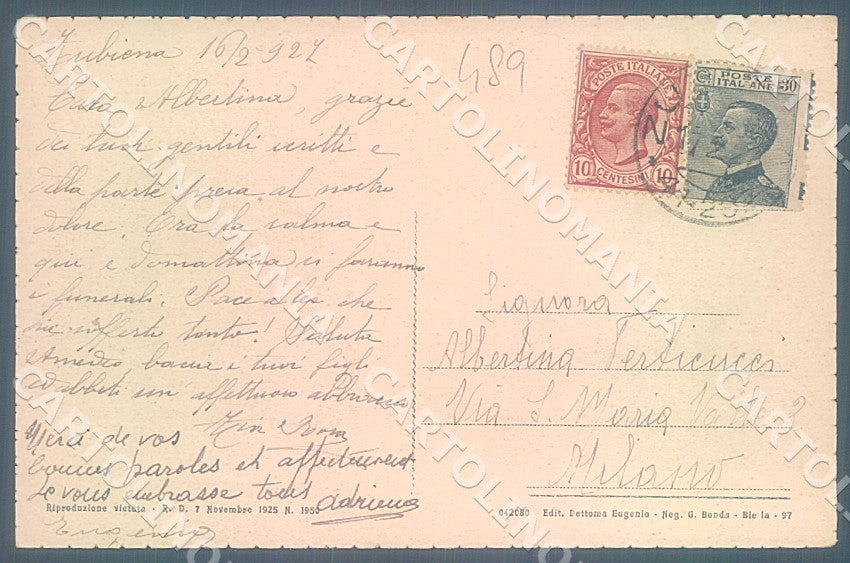 Zubiena 16/2-927
Cara Albertina, grazie
dei tuoi gentili scritti e
della parte presa al nostro
dolore. Ora la salma e
qui e domattina si faranno
i funerali. Pace a lei che
ha sofferto tanto! Saluta
Amedeo, bacia i tuoi figli
ed abbiti un affettuoso abbraccio
Merci de vos
bonnes paroles et affectueusement
Je vous embrasse tous Adriena
Eugenio
489
POSTE ITALIANE
10 CENTESIMI 10
POSTE ITALIANE 30
Signora
Albertina Perticucci
Via S. Maria 3
Milano
Riproduzione vietata - R. D. 7 Novembre 1925 N. 1950
042080 Edit. Dettoma Eugenio - Neg. G. Bonda - Biella - 97
CARTOLINOMANIA